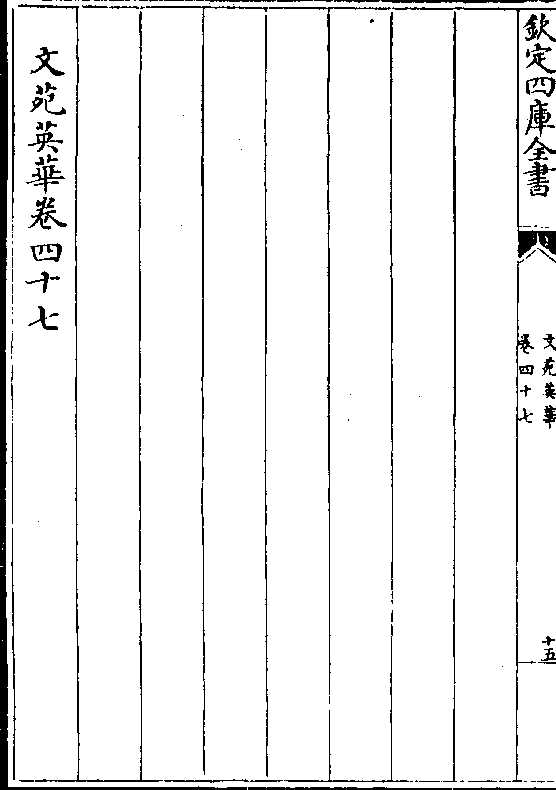 欽定四庫全書
文苑英華
卷四十七
十五
文苑英華卷四十七